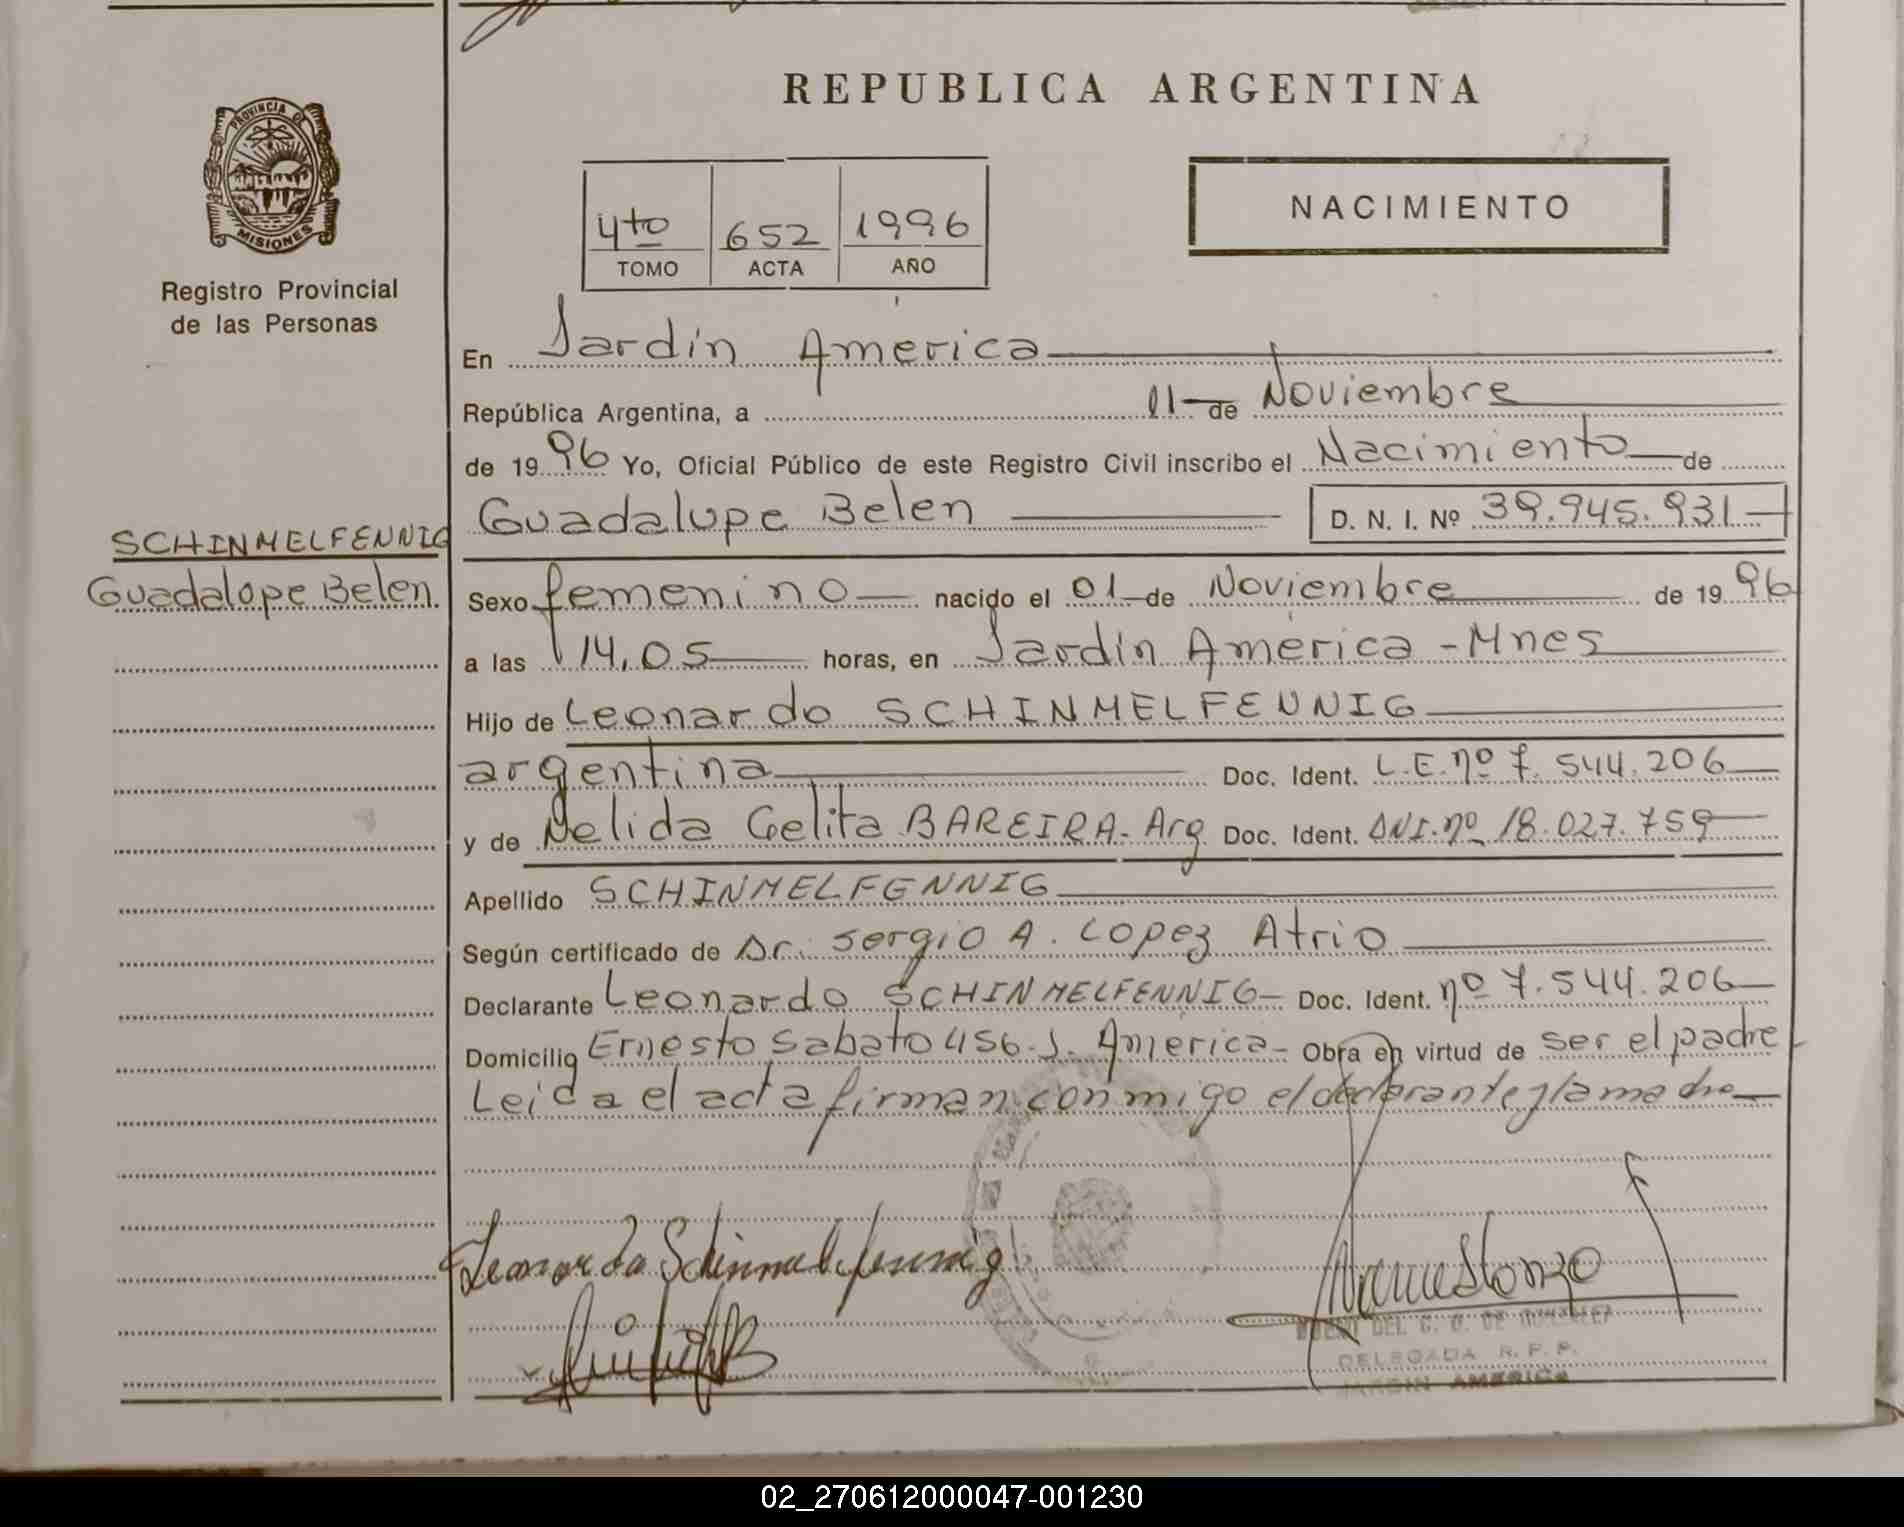 REPUBLICA ARGENTINA
PROVINCIA DE
MISIONES
Registro Provincial
de las Personas
4to 652 1996
TOMO ACTA AÑO
NACIMIENTO
En Jardin America
República Argentina, a 11 de Noviembre
de 1996 Yo, Oficial Público de este Registro Civil inscribo el Nacimiento de
Guadalupe Belen D. N. I. Nº 39.945.931
SCHINMELFENNIG
Guadalope Belen
Sexo femenino nacido el 01 de Noviembre de 1996
a las 14,05 horas, en Jardin América - Mnes
Hijo de Leonardo SCHINMELFENNIG
argentina Doc. Ident. L.E. nº 7.544.206
y de Nelida Gelita BAREIRA - Arg Doc. Ident. DNI. nº 18.027.759
Apellido SCHINMELFENNIG
Según certificado de Dr. Sergio A. Lopez Atrio
Declarante Leonardo SCHINMELFENNIG - Doc. Ident. nº 7.544.206
Domicilio Ernesto Sabato 456. J. América - Obra en virtud de ser el padre
Leida el acta firman conmigo el declarante y la madre
Leonardo Schinmelfennig
DELEGADA R. P. P.
JARDIN AMERICA
02_270612000047-001230